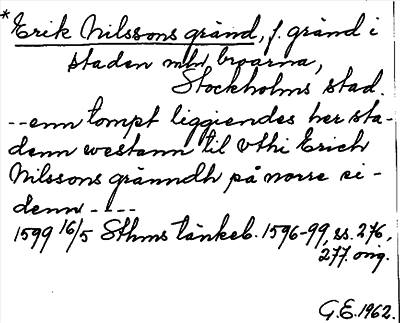 *Erik Nilssons gränd, f. gränd i
staden mln broarna,
Stockholms stad.
--enn tompt liggiendes her sta-
denn westann til vthi Erich
Nilssons gränndh på norre si-
denn----
1599 16/5 Sthms tänkeb. 1596-99, ss. 276,
277. orig.
G.E. 1962.